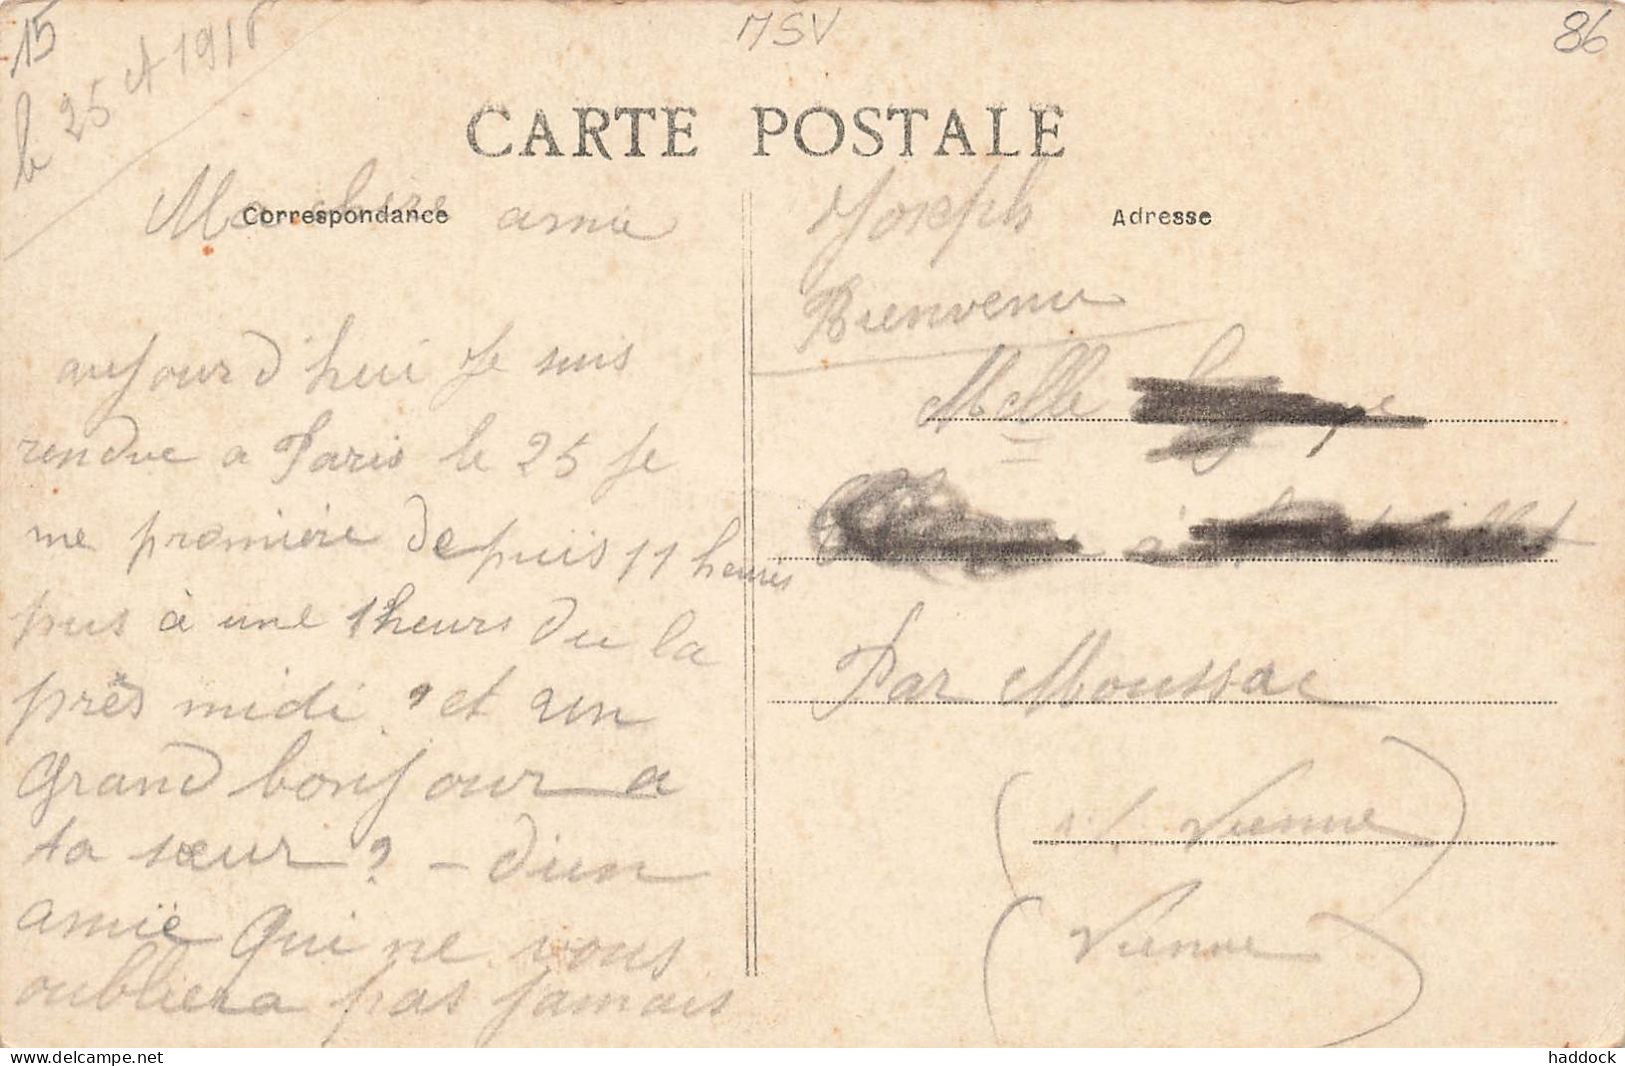 15
le 25 et 1915
MSV
86
CARTE POSTALE
Correspondance
Adresse
Ma chère amie
aujourd'hui Je suis
rendue a Paris le 25 Je
me première depuis 11 heures
pus à une 1 heurs du la
près midi ? et un
grand bonjour a
ta sœur ? - d'un
amië qui ne vous
oubliera pas Jamais
Joseph
Bienvenu
Melle
à
Par Moussac
Vienne
(Vienne)
delcampe.net
haddock